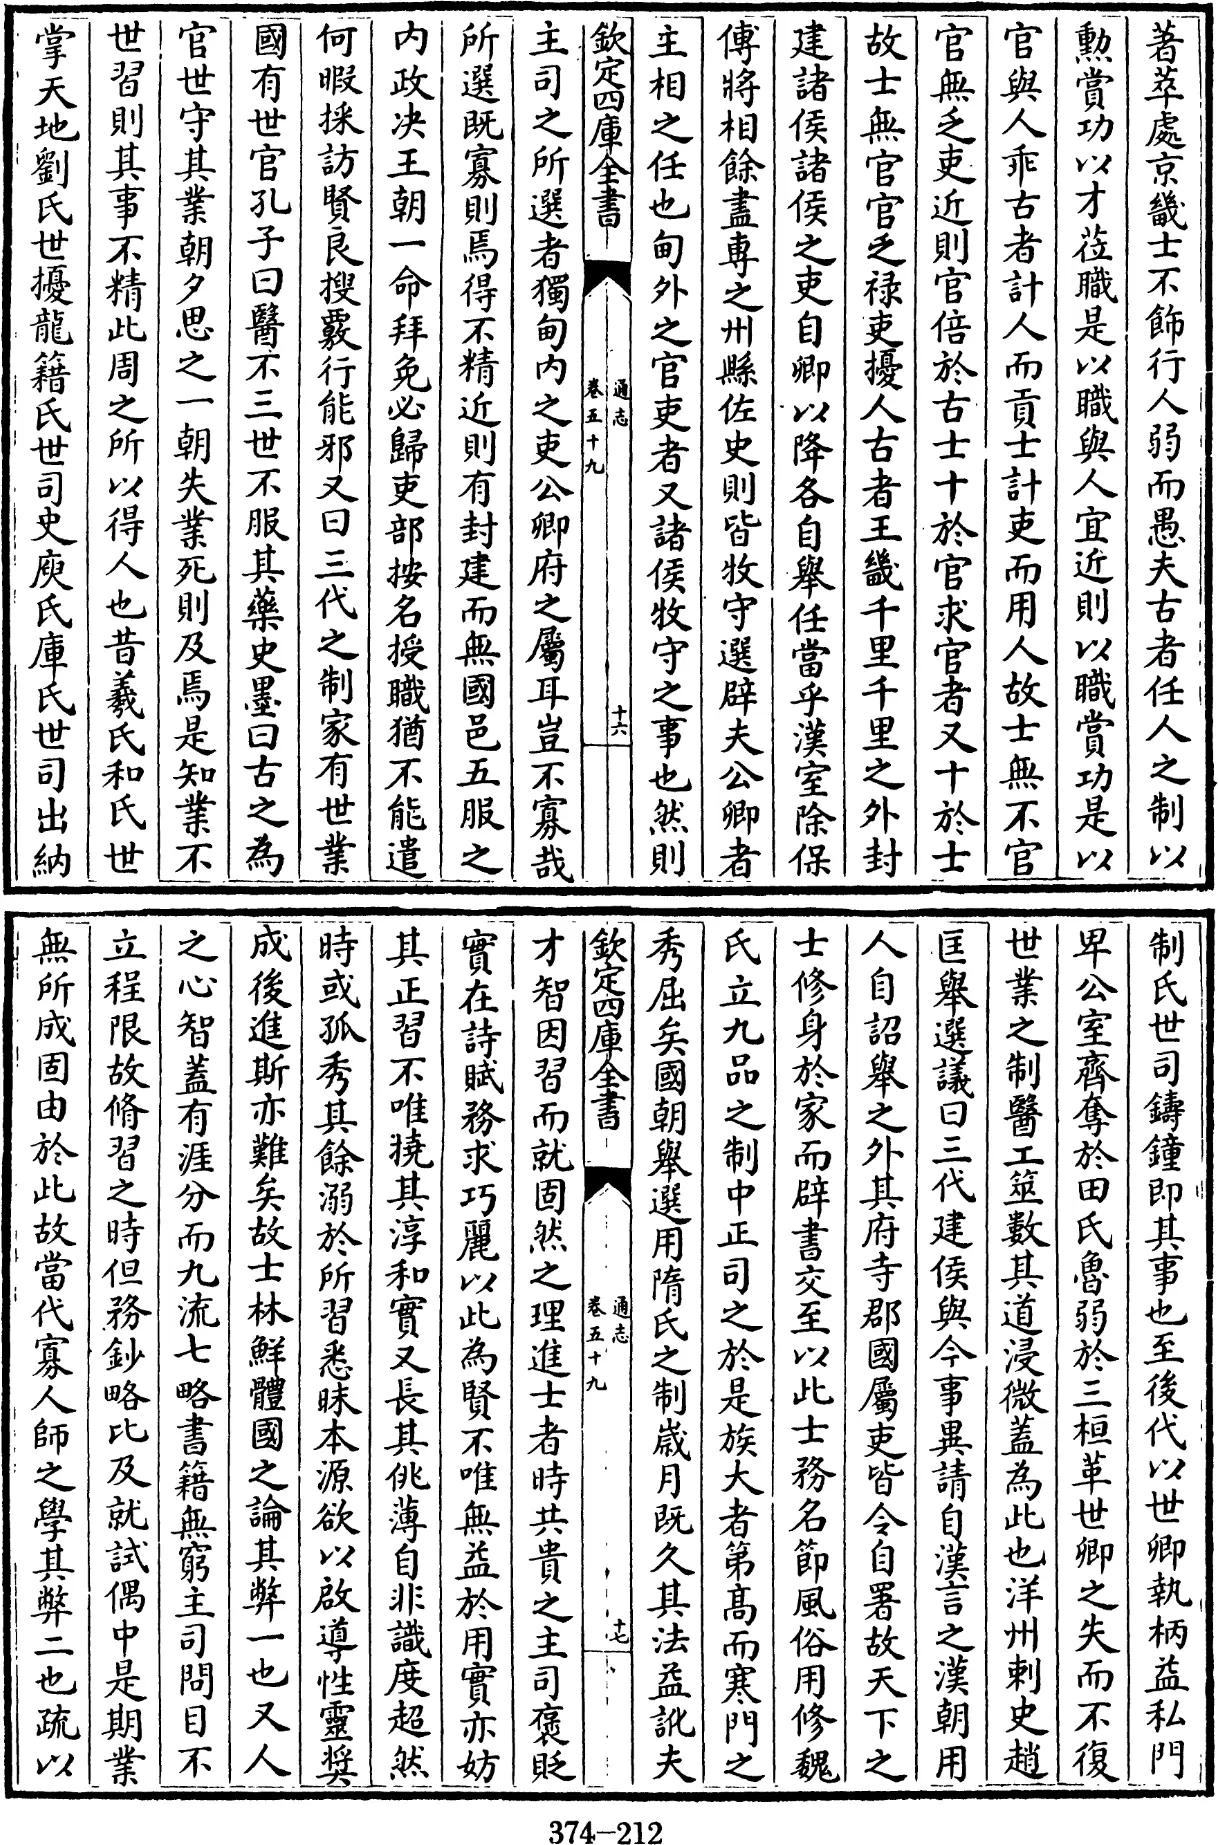 著萃處京畿士不飾行人弱而愚夫古者任人之制以
勲賞功以才莅職是以職與人宜近則以職賞功是以
官與人乖古者計人而貢士計吏而用人故士無不官
官無乏吏近則官倍於古士十於官求官者又十於士
故士無官官乏禄吏擾人古者王畿千里千里之外封
建諸侯諸侯之吏自卿以降各自舉任當乎漢室除保
傅將相餘盡専之州縣佐史則皆牧守選辟夫公卿者
主相之任也甸外之官吏者又諸侯牧守之事也然則
欽定四庫全書
通志
卷五十九
十六
主司之所選者獨甸内之吏公卿府之屬耳豈不寡哉
所選既寡則焉得不精近則有封建而無國邑五服之
内政决王朝一命拜免必歸吏部按名授職猶不能遣
何暇採訪賢良搜覈行能邪又曰三代之制家有世業
國有世官孔子曰醫不三世不服其藥史墨曰古之為
官世守其業朝夕思之一朝失業死則及焉是知業不
世習則其事不精此周之所以得人也昔羲氏和氏世
掌天地劉氏世擾龍籍氏世司史庾氏庫氏世司出納
制氏世司鑄鐘即其事也至後代以世卿執柄益私門
卑公室齊奪於田氏魯弱於三桓革世卿之失而不復
世業之制醫工筮數其道浸微蓋為此也洋州刺史趙
匡舉選議曰三代建侯與今事異請自漢言之漢朝用
人自詔舉之外其府寺郡國屬吏皆令自署故天下之
士修身於家而辟書交至以此士務名節風俗用修魏
氏立九品之制中正司之於是族大者第髙而寒門之
秀屈矣國朝舉選用隋氏之制歳月既久其法益訛夫
欽定四庫全書
通志
卷五十九
十七
才智因習而就固然之理進士者時共貴之主司褒貶
實在詩賦務求巧麗以此為賢不唯無益於用實亦妨
其正習不唯撓其淳和實又長其佻薄自非識度超然
時或孤秀其餘溺於所習悉昧本源欲以啟導性靈奨
成後進斯亦難矣故士林鮮體國之論其弊一也又人
之心智蓋有涯分而九流七略書籍無窮主司問目不
立程限故脩習之時但務鈔略比及就試偶中是期業
無所成固由於此故當代寡人師之學其弊二也疏以
374-212